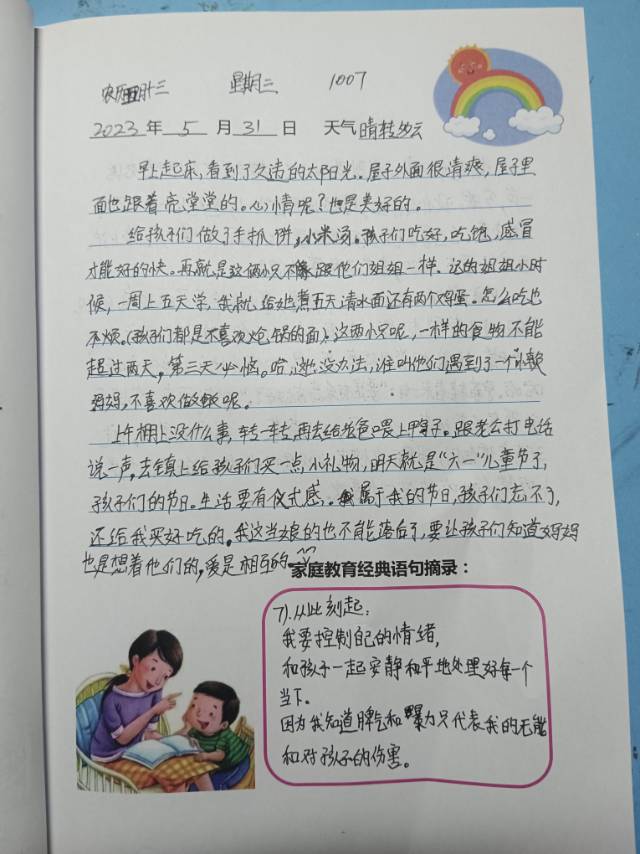 农历四月十三 星期三 1007
2023年 5 月 31 日 天气晴转多云
早上起床,看到了久违的太阳光。屋子外面很清爽,屋子里
面也跟着亮堂堂的。心情呢?也是美好的。
给孩子们做了手抓饼,小米汤。孩子们吃好,吃饱,感冒
才能好的快。再就是这俩小只不像跟他们姐姐一样。这的姐姐小时
候,一周上五天学,我就给她煮五天清水面还有两个鸡蛋。怎么吃也
不烦。(孩子们都是不喜欢炝锅的面)。这两小只呢,一样的食物不能
超过两天,第三天必恼。哈,没办法,谁叫他们遇到了一个懒
妈妈,不喜欢做饭呢。
上午棚上没什么事,转一转,再去给爸喂上鸭子。跟老公打电话
说一声,去镇上给孩子们买一点小礼物,明天就是“六一”儿童节了,
孩子们的节日。生活要有仪式感。属于我的节日,孩子们忘不了,
还给我买好吃的。我这当娘的也不能落后了,要让孩子们知道妈妈
也是想着他们的,爱是相互的
家庭教育经典语句摘录:
7).从此刻起:
我要控制自己的情绪,
和孩子一起安静和平地处理好每一个
当下。
因为我知道脾气和暴力只代表我的无能
和对孩子的伤害。